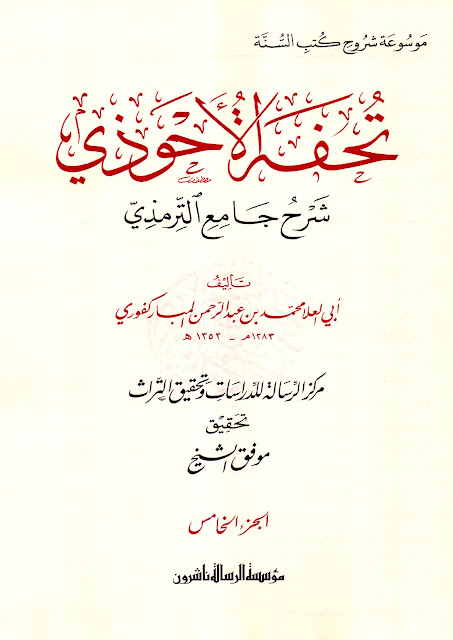 مَوسُوعَة شروحِ كُتبِ السُّنَّة
تُحفَة الأحْوَذي
شَرْحُ جَامِعِ التِّرمذِيّ
تَأليفُ
أبي العلا محمد بن عبد الرحمن المباركفوري
١٢٨٣م - ١٣٥٣ هـ
مركز الرِّسالة للدِّراسَاتِ وتحقيق التُّراث
تحقِيْق
موفق الشيخ
الجزء الخامس
مؤسسة الرسالة ناشرون